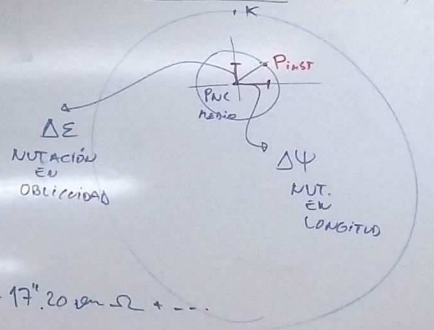 K
Pinst
PNC
MEDIO
Δε
NUTACIÓN
EN
OBLICUIDAD
ΔΨ
NUT.
EN
LONGITUD
17".20 sen Ω + ...